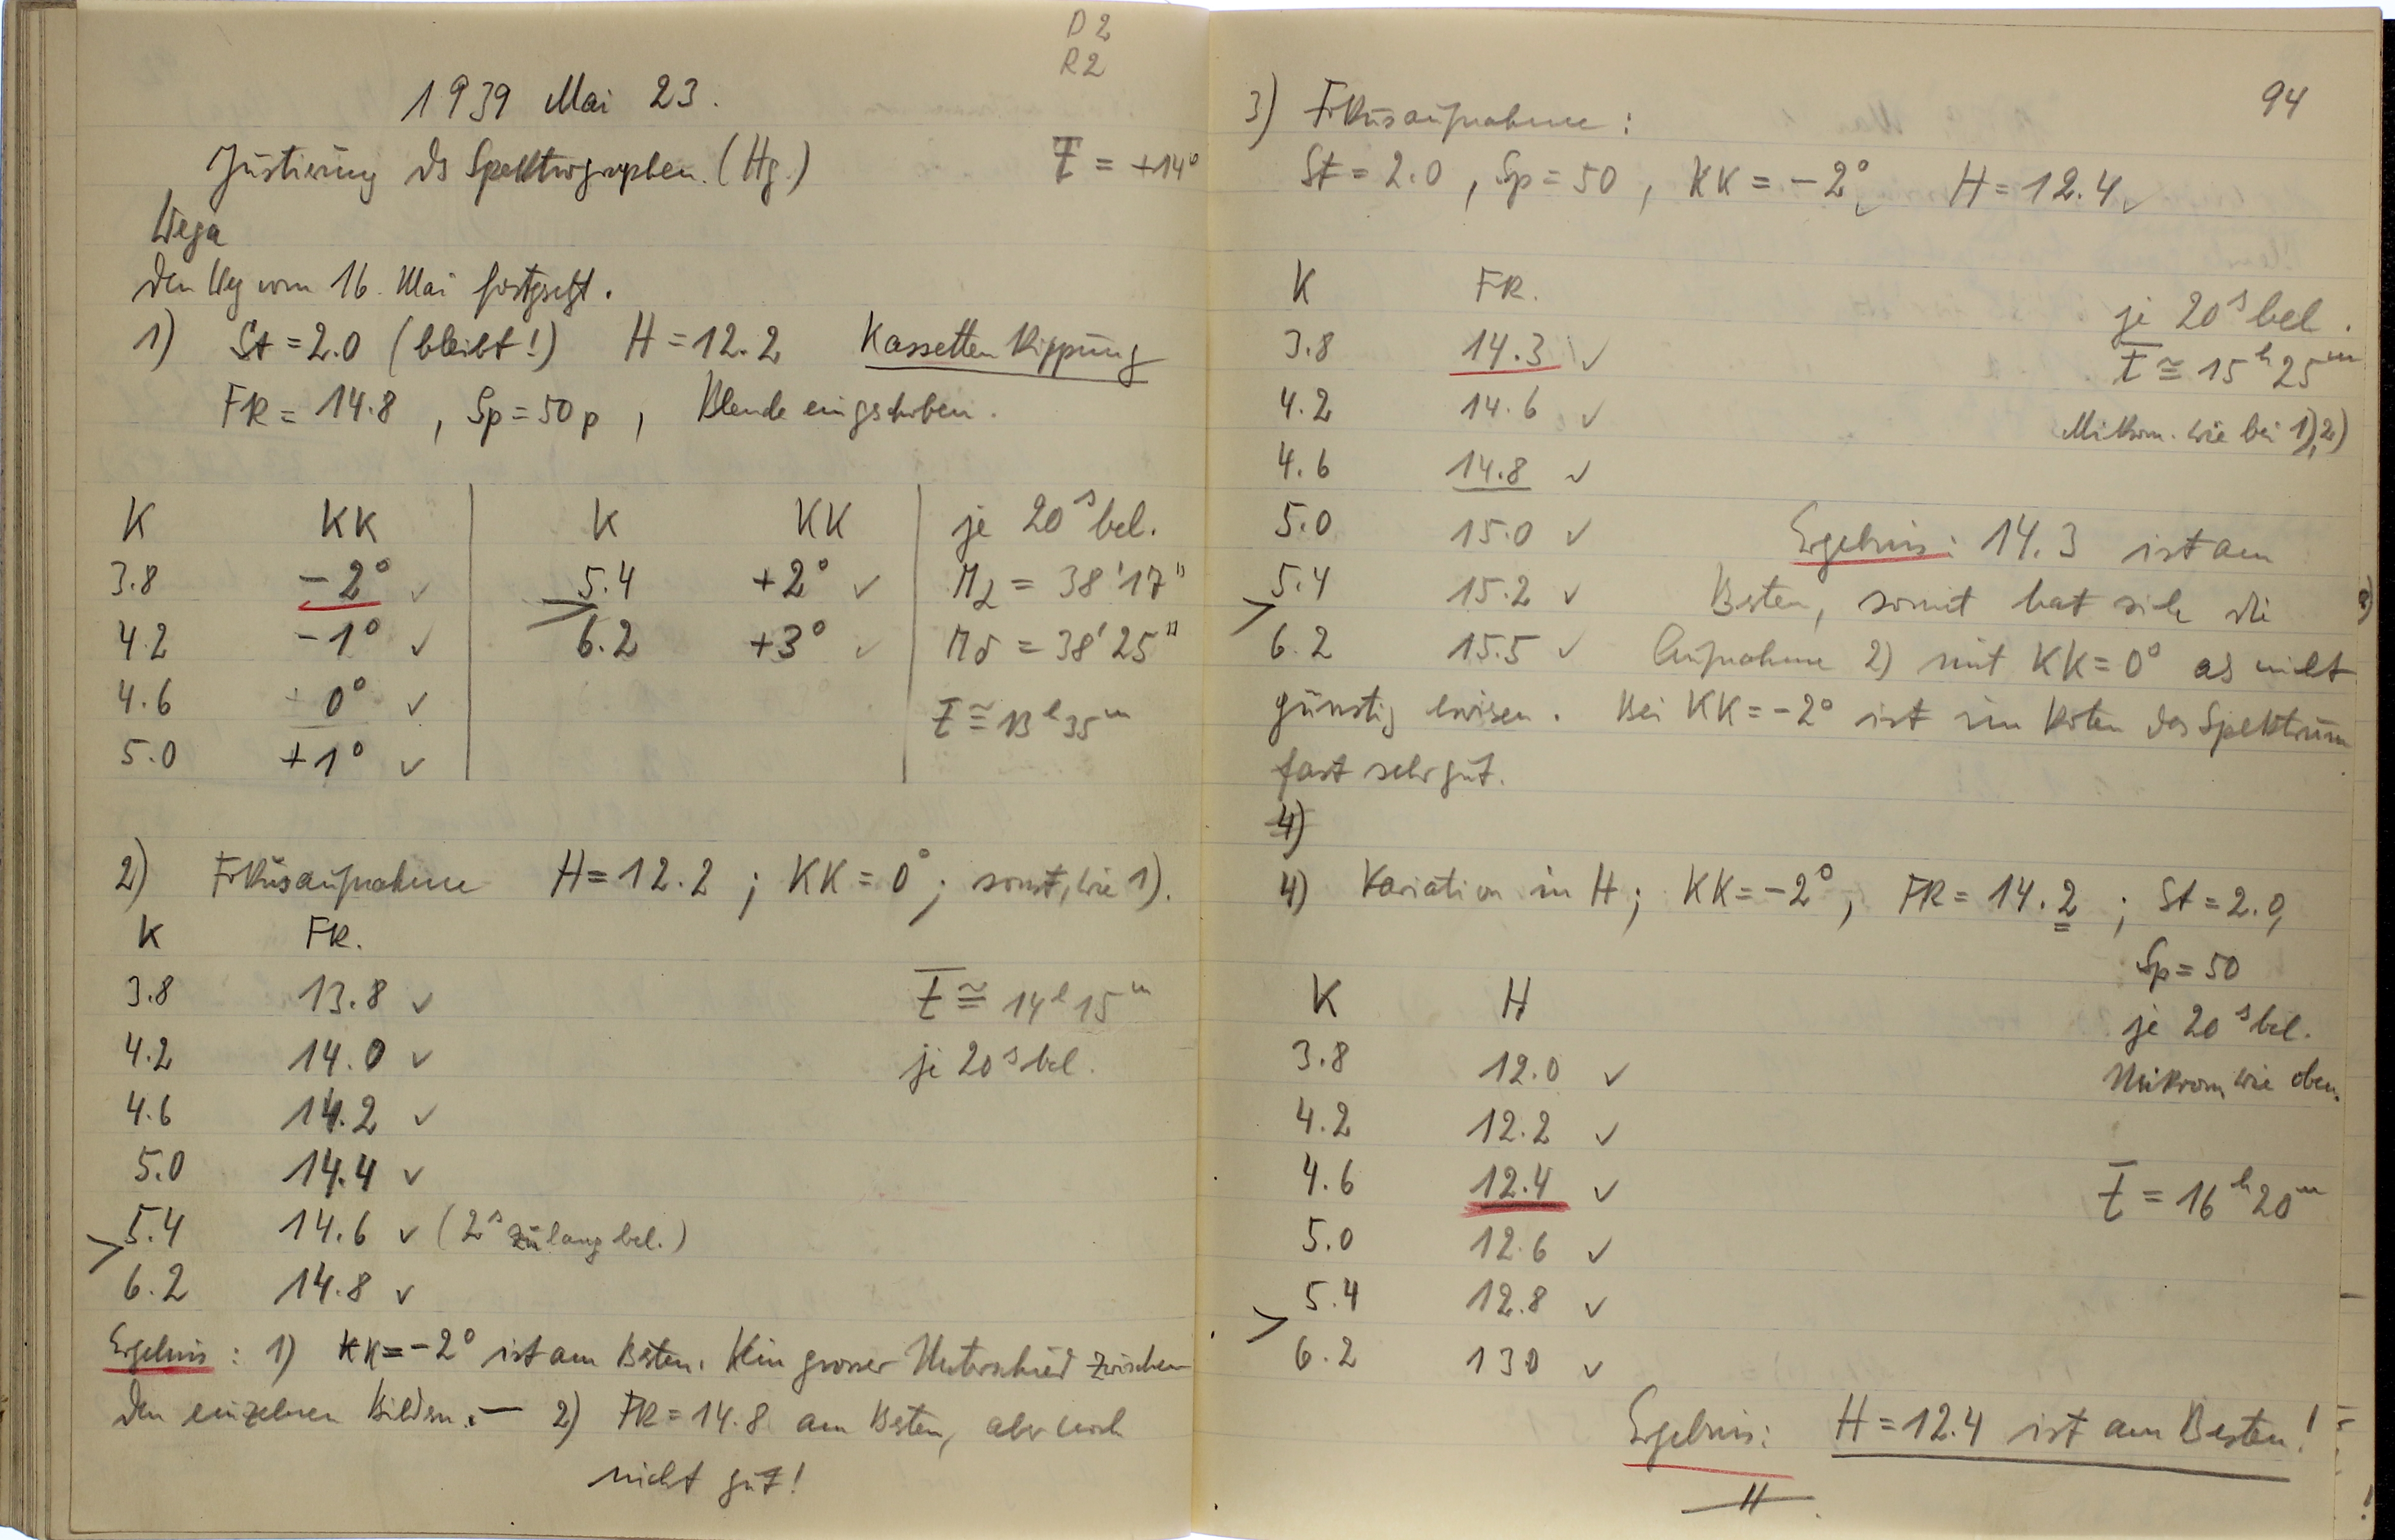 D 2
R 2
1939 Mai 23.
Justierung des Spektrographen. (Hg.)
t = +14°
Wega
Den Weg vom 16. Mai fortgesetzt.
1) St = 2.0 (bleibt!) H = 12.2 Kassettenkippung
FR = 14.8, Sp = 50 p, Blende eingeschoben.
K KK K KK je 20s bel.
3.8 -2° ✓ 5.4 +2° ✓ Mα = 38'17"
4.2 -1° ✓ > 6.2 +3° ✓ Mδ = 38'25"
4.6 0° ✓
t ≅ 13h 35m
5.0 +1° ✓
2) Fokusaufnahme H = 12.2; KK = 0°; sonst, wie 1).
K FR.
3.8 13.8 ✓ t ≅ 14h 15m
4.2 14.0 ✓ je 20s bel.
4.6 14.2 ✓
5.0 14.4 ✓
5.4 14.6 ✓ (2s zu lang bel.)
> 6.2 14.8 ✓
Ergebnis: 1) KK = -2° ist am Besten. Kein grosser Unterschied zwischen
den einzelnen Bildern. — 2) FR = 14.8 am Besten, aber noch
nicht gut!
94
3) Fokusaufnahme:
St = 2.0, Sp = 50, KK = -2° ✓ H = 12.4 ✓
K FR.
je 20s bel.
3.8 14.3 ✓
t ≅ 15h 25m
4.2 14.6 ✓
Mikrom. wie bei 1), 2)
4.6 14.8 ✓
5.0 15.0 ✓ Ergebnis: 14.3 ist am
5.4 15.2 ✓ Besten, somit hat sich die
> 6.2 15.5 ✓ Aufnahme 2) mit KK = 0° als nicht
günstig erwiesen. Bei KK = -2° ist im Roten das Spektrum
fast sehr gut.
4)
4) Variation in H; KK = -2°, FR = 14.2; St = 2.0,
Sp = 50
K H
je 20s bel.
3.8 12.0 ✓
Mikrom. wie oben.
4.2 12.2 ✓
4.6 12.4 ✓
t = 16h 20m
5.0 12.6 ✓
5.4 12.8 ✓
> 6.2 130 ✓
Ergebnis: H = 12.4 ist am Besten!